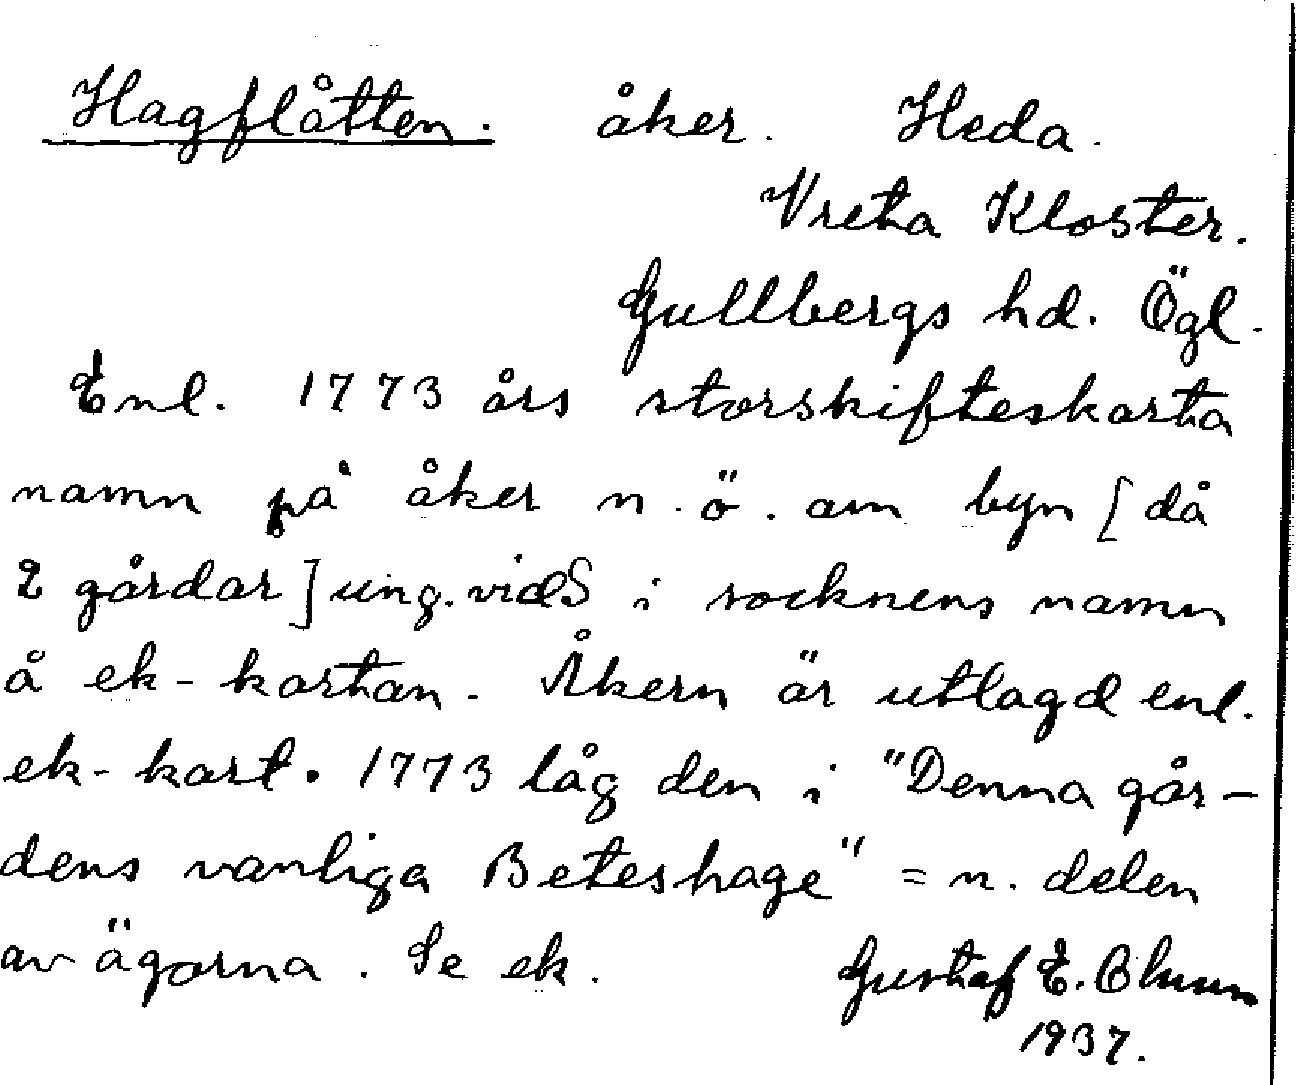 Hagflåtten. åker. Heda.
Vreta Kloster.
Gullbergs hd. Ögl.
Enl. 1773 års storskifteskarta
namn på åker n.ö. om byn [då
2 gårdar] ung. vid S i socknens namn
å ek-kartan. Åkern är utlagd enl.
ek-kart. 1773 låg den i "Denna går-
dens vanliga Beteshage" = n. delen
av ägorna. Se ek. Gustaf E. Blum
1937.